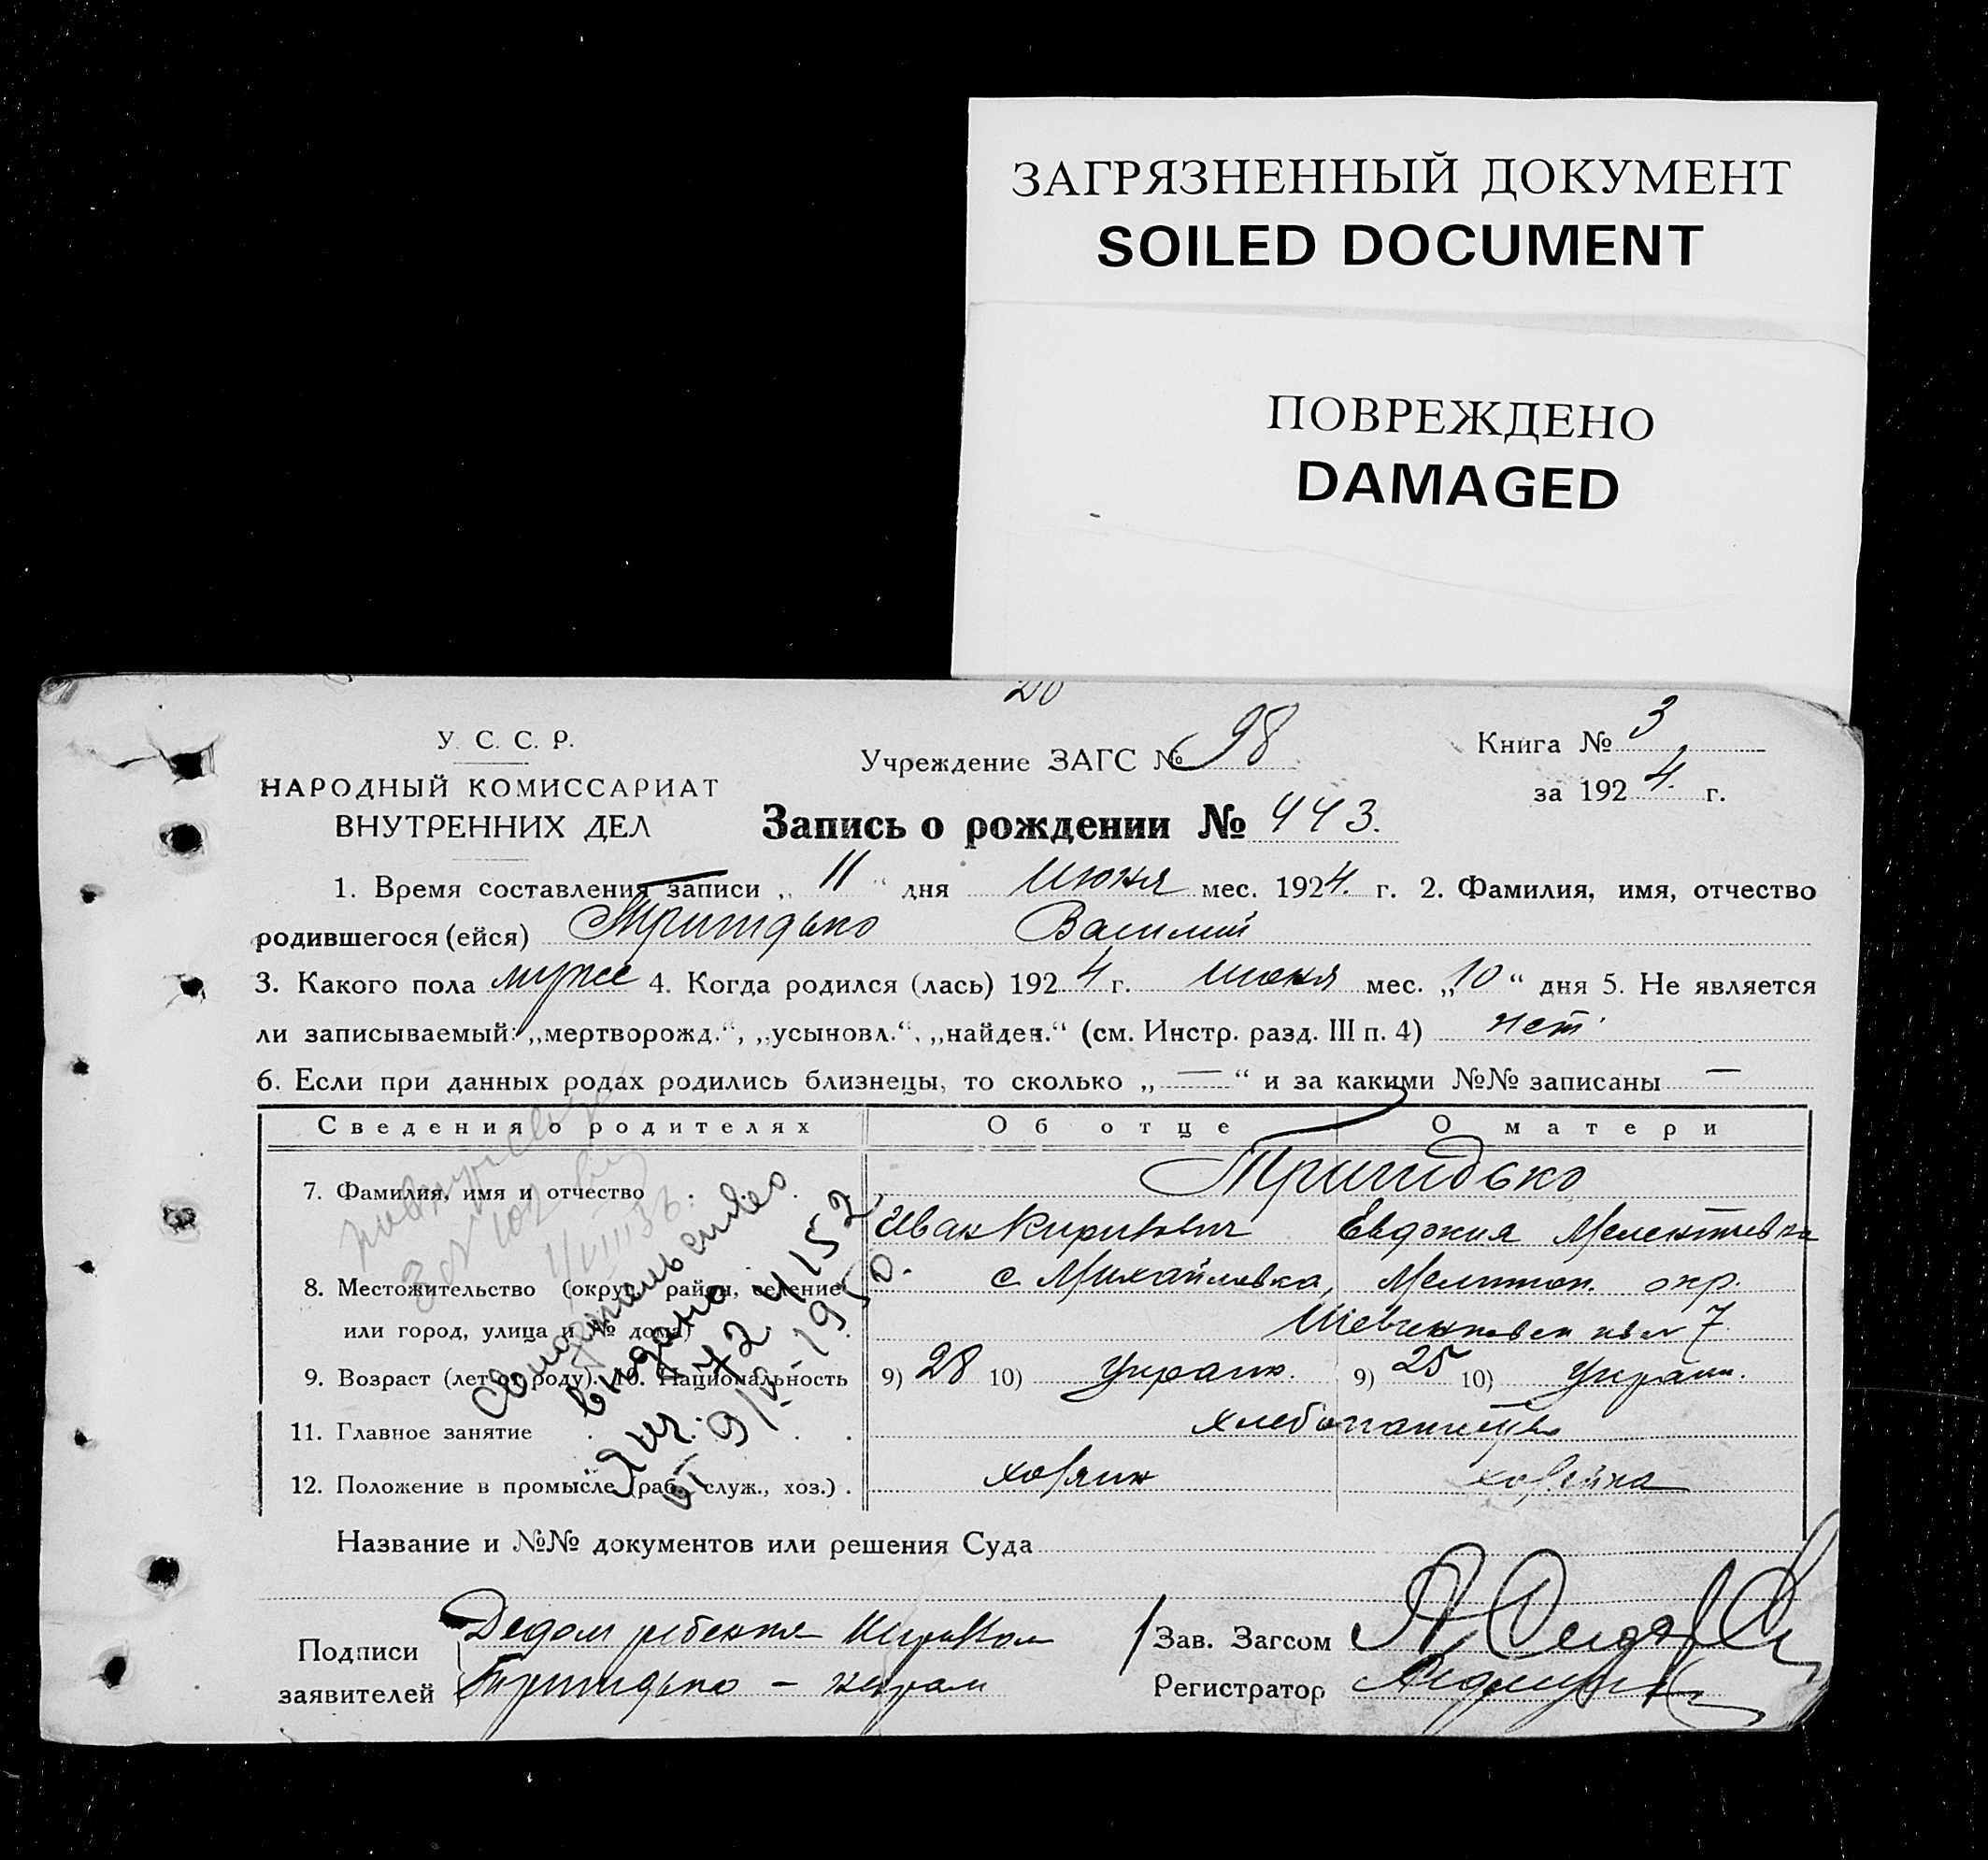 ЗАГРЯЗНЕННЫЙ ДОКУМЕНТ
SOILED DOCUMENT
ПОВРЕЖДЕНО
DAMAGED
У. С. С. Р.
НАРОДНЫЙ КОМИССАРИАТ
ВНУТРЕННИХ ДЕЛ
Учреждение ЗАГС № 98
Книга № 3
за 1924. г.
Запись о рождении № 443.
1. Время составления записи „ 11 " дня Июня мес. 1924. г. 2. Фамилия, имя, отчество
родившегося (ейся) Тришдько Василий
3. Какого пола муже 4. Когда родился (лась) 1924 г. июня мес. „10" дня 5. Не является
ли записываемый: „мертворожд.", „усыновл.", „найден." (см. Инстр. разд. III п. 4) нет
6. Если при данных родах родились близнецы, то сколько „ — " и за какими №№ записаны —
Сведения о родителях Об отце О матери
7. Фамилия, имя и отчество Тришдько
Иван Кирикович Евдокия
8. Местожительство (округ, район, селение с. Михайловка, Мелитоп. окр.
или город, улица и № дома) 7
9. Возраст (лет от роду). 10. Национальность 9) 28 10) Украин. 9) 25 10) Украин.
11. Главное занятие хлебопашество
12. Положение в промысле (раб., служ., хоз.) хозяин хозяйка
Свидетельство
выдано
ЯЩ. 472 4152
от 9/V-1950.
Название и №№ документов или решения Суда
Подписи
заявителей
Дедом ребенка Кириком
Тришдько –
Зав. Загсом
Регистратор